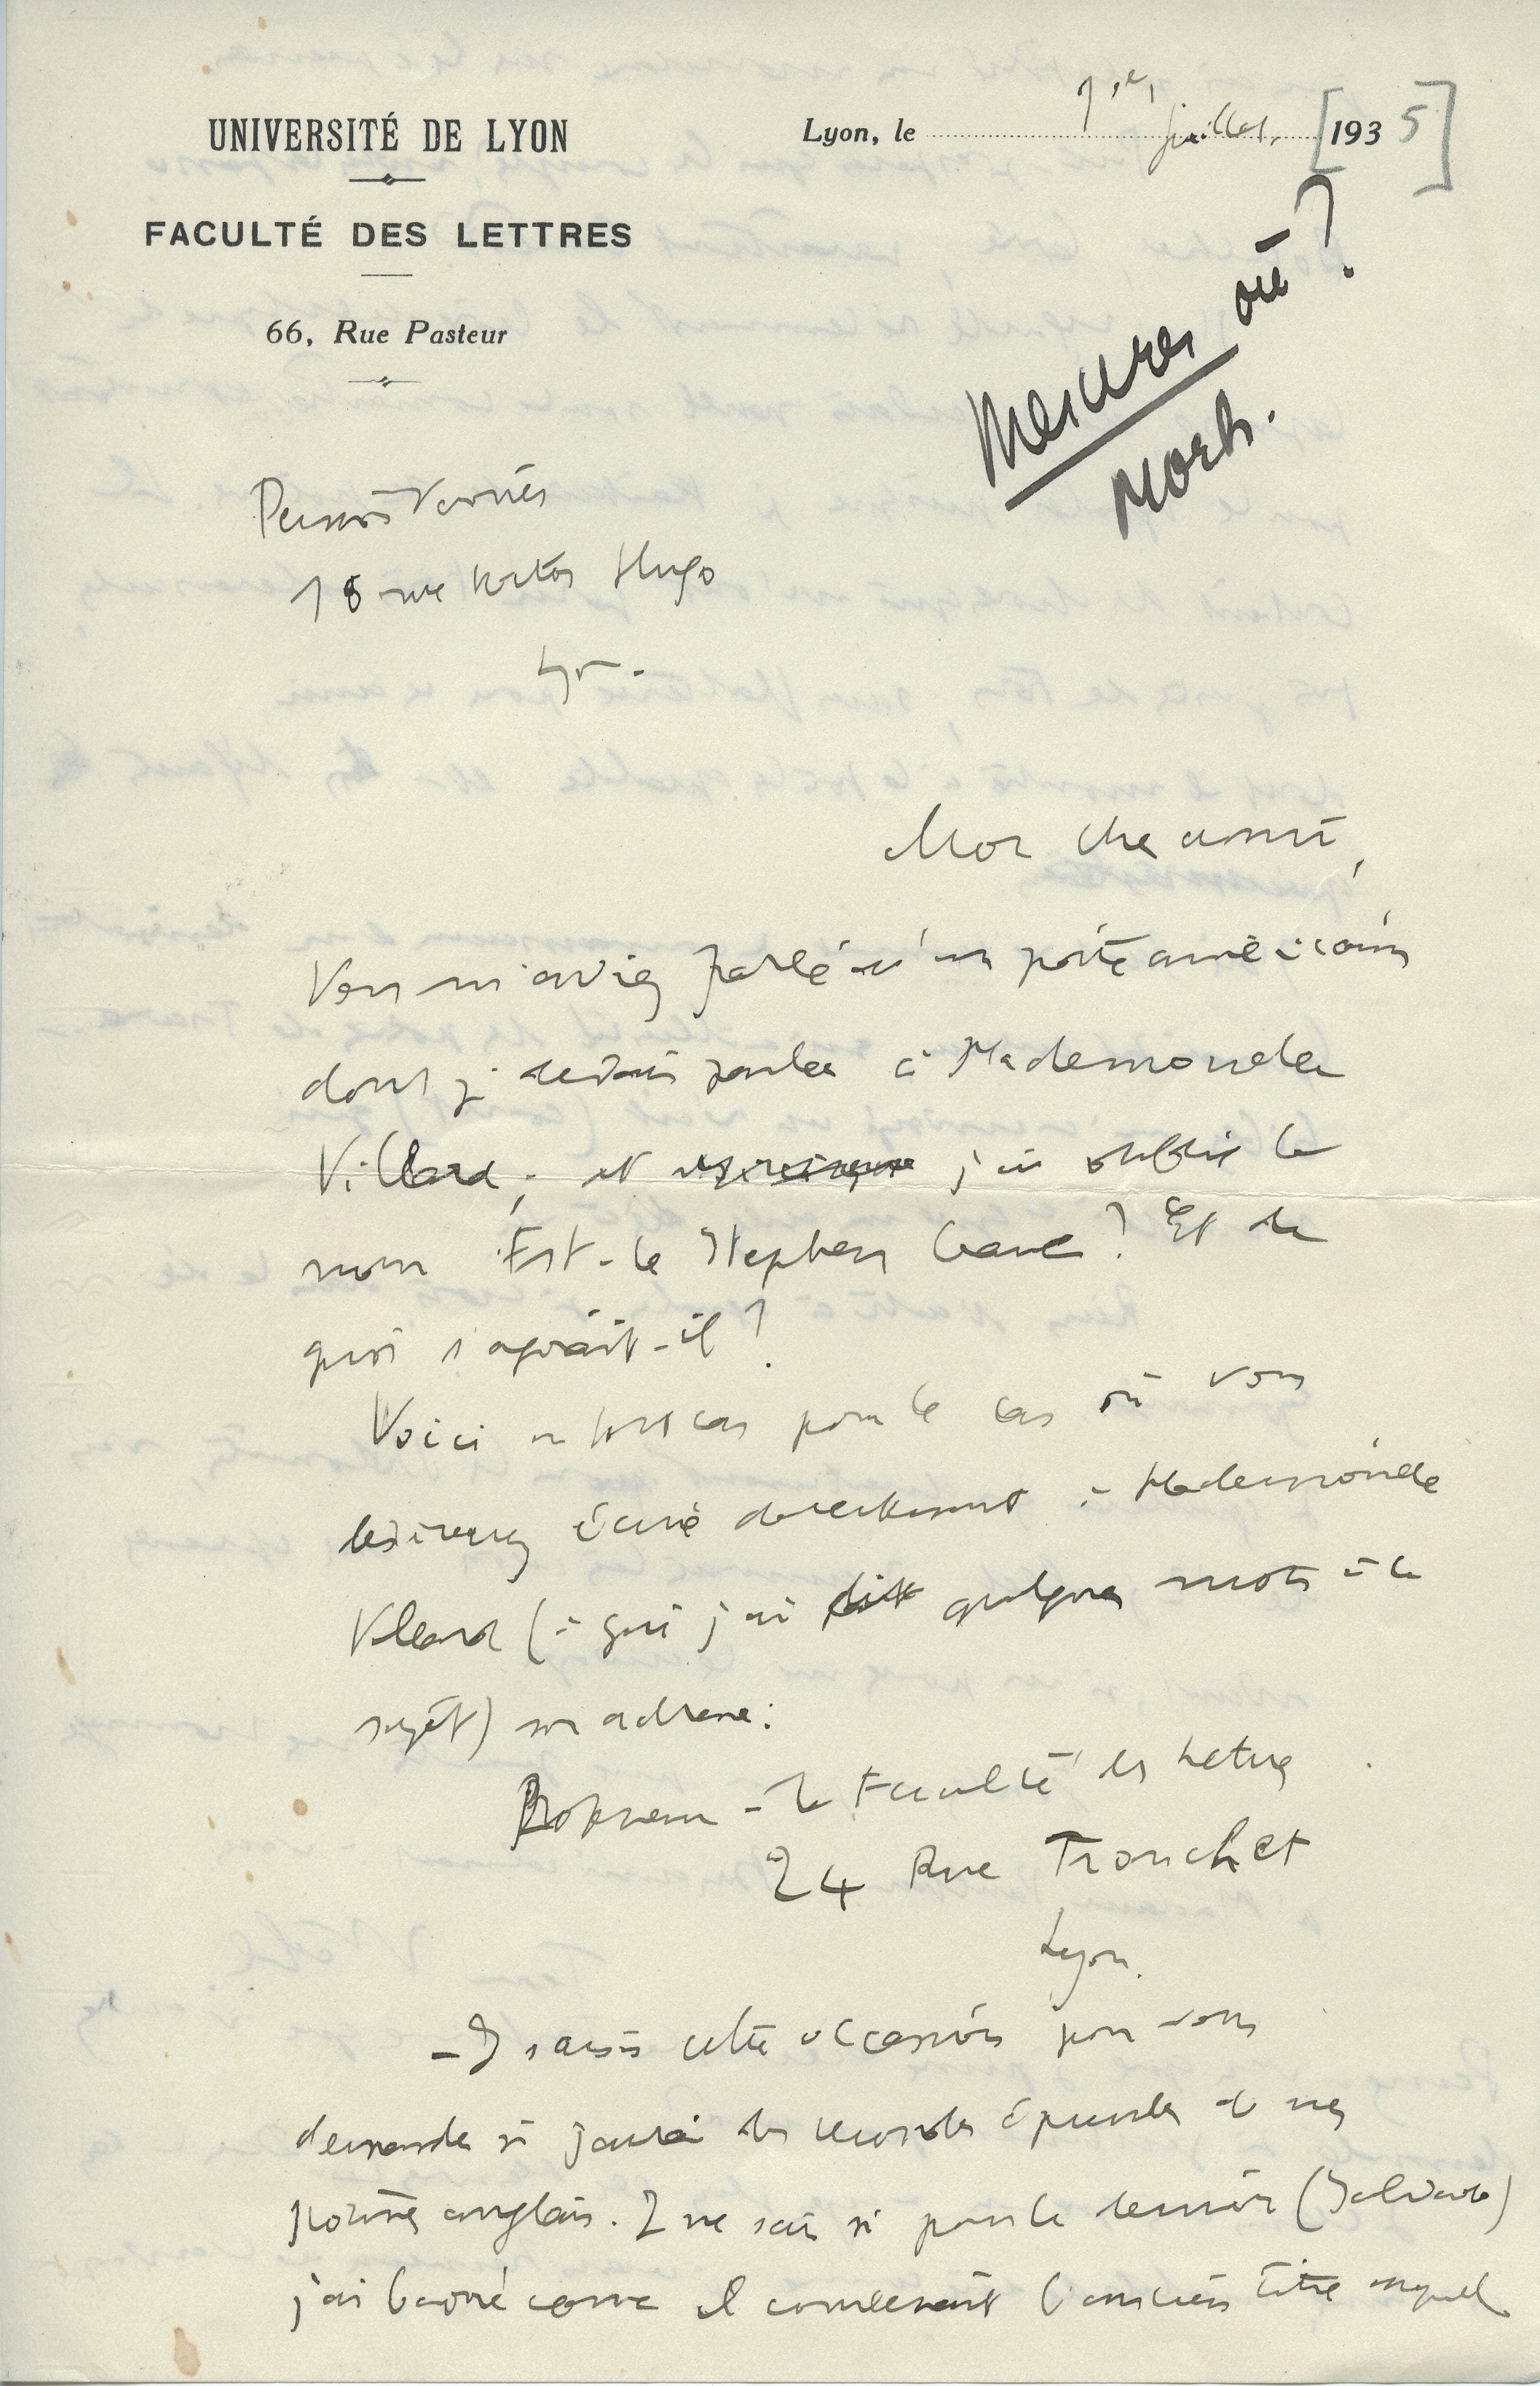 UNIVERSITÉ DE LYON
FACULTÉ DES LETTRES
66, Rue Pasteur
Lyon, le 1er juillet [1935]
Mesures où?
18 rue Victor Hugo
Lyon.
Mon cher ami,
Vous m'aviez parlé d'un poète américain
dont je devais parler à Mademoiselle
Villard; et j'ai oublié le
nom. Est-ce Stephen Crane? Et de
quoi s'agirait-il?
Voici en tout cas pour le cas où vous
désireriez écrire directement à Mademoiselle
Villard (à qui j'ai dit quelques mots à ce
sujet) son adresse:
Professeur à la Faculté des Lettres
24 Rue Tronchet
Lyon.
- Je saisis cette occasion pour vous
demander si j'aurai des secondes épreuves de mes
poèmes anglais. Je ne sais si pour le dernier
j'ai barré comme il convenait l'ancien titre auquel